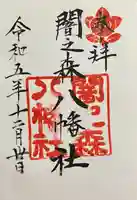 奉拝
闇之森八幡社
闇之森
八幡社
令和五年十二月廿日